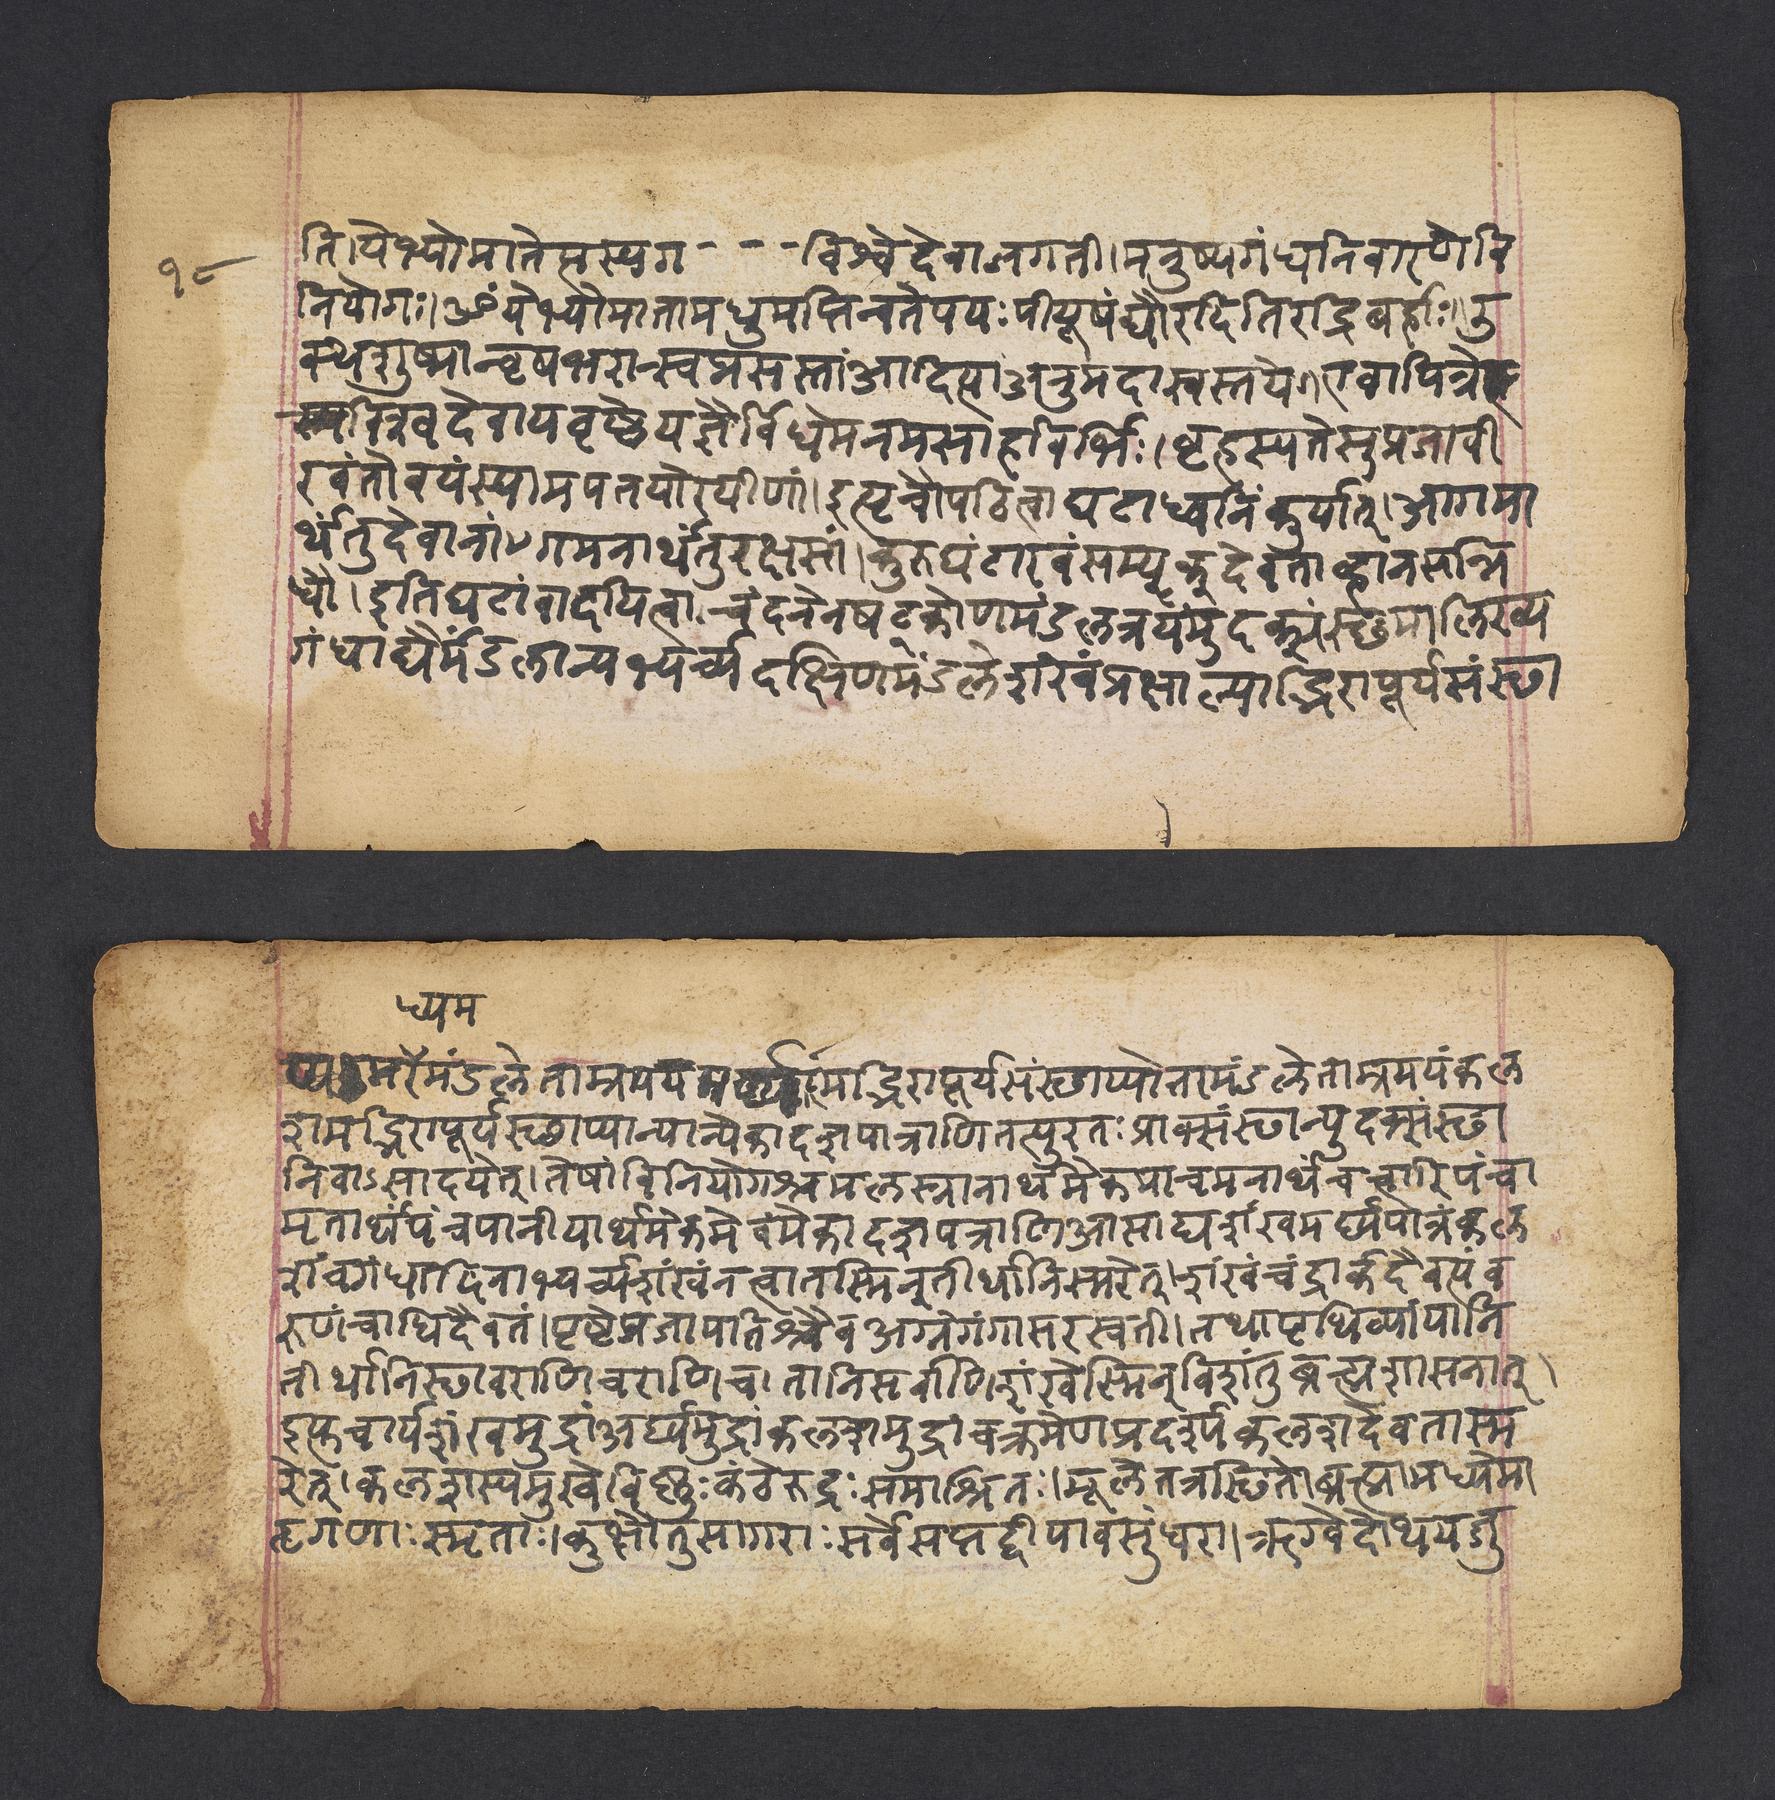 १८
ति। येभ्योमातेत्यस्यग - - - विश्वेदेवाजगती। मनुष्यगंधनिवारणेवि
नियोगः। ॐ येभ्योमातामधुमत्पिन्वतेपयः पीयूषंद्यौरदितिरद्रिबर्हाः। उ
क्थशुष्मान्वृषभरान्स्वप्नसस्तांआदित्याअनुमदास्वस्तये। एवापित्रे
विश्वदेवायवृष्णेयज्ञैर्विधेमनमसाहविर्भिः। बृहस्पतेसुप्रजावी
रवंतोवयंस्यामपतयोरयीणां। इत्यृचौपठित्वाघंटाध्वनिंकुर्यात्। आगमा
र्थंतुदेवानांगमनार्थंतुरक्षसां। कुरुघंटारवंसम्यक्देवताव्हानसन्नि
धौ। इतिघटांवादयित्वा। चंदनेनषट्कोणमंडलत्रयंमुदक्संस्छमालिख्य
गंधाद्यैर्मंडलान्यभ्यर्च्यदक्षिणमंडलेशंखंप्रक्षाल्याद्भिरापूर्यसंस्छा
ध्यम
प्य मंडलेताम्रमय माद्भिरापूर्यसंस्छाप्योत्तामंडलेताम्रमयंकल
शमद्भिरापूर्यस्छाप्यान्यान्येकादशपात्राणितत्पुरतः प्राक्संस्छान्युदक्संस्छा
निवाऽसादयेत्। तेषांविनियोगश्चमलस्नानार्थमेकमाचमनार्थंचत्वारिपंचा
मृतार्थंपंचपानीयार्थमेकमेवंमेकादशपत्राणिआसाद्यशंखमर्घ्यपात्रंकल
शंचगंधादिनाभ्यर्च्यशंखंनत्वातस्मिन्तीर्थानिस्मरेत्। शंखंचंद्रार्कदैवत्यंव
रुणंचाधिदैवतं। पृष्ठेप्रजापतिश्चैवअग्रेगंगासरस्वती। तथापृथिव्यांयानि
तीर्थानिस्छावराणिचराणिच। तानिसर्वाणिशंखेस्मिन्विशंतुब्रह्मशासनात्।
इत्युच्चार्यशंखमुद्रांअर्घ्यमुद्रांकलशमुद्रांचक्रमेणप्रदर्श्यकलशदेवतास्म
रेत्। कलशस्यमुखेविष्णुः कंठेरुद्रः समाश्रितः। मूलेतत्रस्छितोब्रह्मामध्येमा
तृगणाः स्मृताः। कुक्षौतुसागराः सर्वेसप्तद्वीपावसुंधरा। ऋग्वेदोथयजु